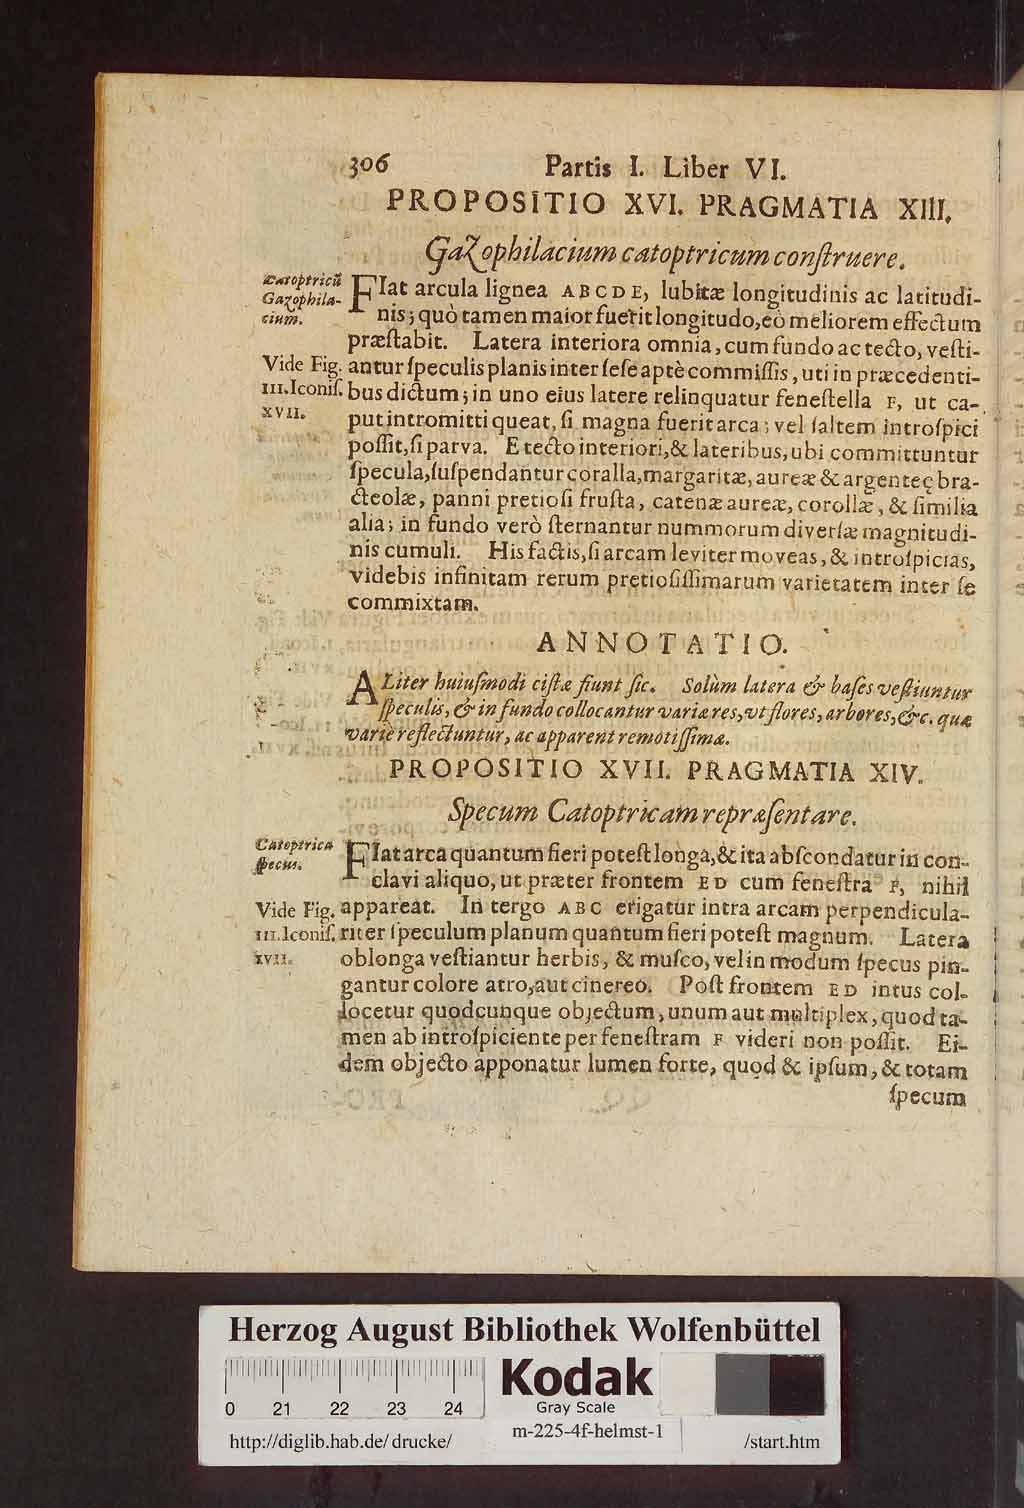 306 Partis I. Liber VI.
PROPOSITIO XVI. PRAGMATIA XIII.
Gazophilacium catoptricum conſtruere.
Catoptricũ
Gazophila-
cium.
FIat arcula lignea ABCDE, lubitæ longitudinis ac latitudi-
nis; quò tamen maior fuerit longitudo, eò meliorem effectum
præſtabit. Latera interiora omnia, cum fundo ac tecto, veſti-
Vide Fig.
III. Iconiſ.
XVII.
antur ſpeculis planis inter ſeſe aptè commiſſis, uti in præcedenti-
bus dictum; in uno eius latere relinquatur feneſtella F, ut ca-
put intromitti queat, ſi magna fuerit arca; vel ſaltem introſpici
poſſit, ſi parva. E tecto interiori, & lateribus, ubi committuntur
ſpecula, ſuſpendantur coralla, margaritæ, aureæ & argenteę bra-
cteolæ, panni pretioſi fruſta, catenæ aureæ, corollæ, & ſimilia
alia; in fundo verò ſternantur nummorum diverſæ magnitudi-
nis cumuli. His factis, ſi arcam leviter moveas, & introſpicias,
videbis infinitam rerum pretioſiſſimarum varietatem inter ſe
commixtam.
ANNOTATIO.
ALiter huiuſmodi ciſtæ fiunt ſic. Solùm latera & baſes veſtiuntur
ſpeculis, & in fundo collocantur variæ res, vt flores, arbores, &c. quæ
variè reflectuntur, ac apparent remotiſſimæ.
PROPOSITIO XVII. PRAGMATIA XIV.
Specum Catoptricam repræſentare.
Catoptrica
ſpecus.
FIat arca quantum fieri poteſt longa, & ita abſcondatur in con-
clavi aliquo, ut præter frontem ED cum feneſtra F, nihil
Vide Fig.
III. Iconiſ.
XVII.
appareat. In tergo ABC erigatur intra arcam perpendicula-
riter ſpeculum planum quantum fieri poteſt magnum. Latera
oblonga veſtiantur herbis, & muſco, vel in modum ſpecus pin-
gantur colore atro, aut cinereo. Poſt frontem ED intus col-
locetur quodcunque objectum, unum aut multiplex, quod ta-
men ab introſpiciente per feneſtram F videri non poſſit. Ei-
dem objecto apponatur lumen forte, quod & ipſum, & totam
ſpecum
Herzog August Bibliothek Wolfenbüttel
0 21 22 23 24
Kodak
Gray Scale
http://diglib.hab.de/drucke/ m-225-4f-helmst-1 /start.htm